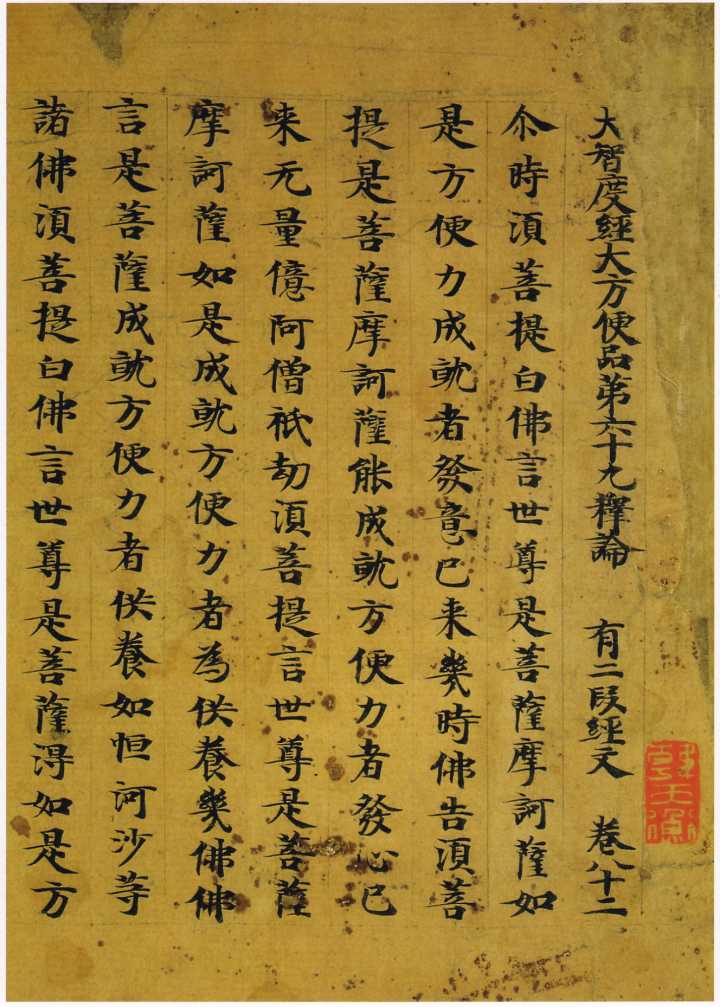 大智度經大方便品第六十九釋論 有二段經文 卷八十二
尒時須菩提白佛言世尊是菩薩摩訶薩如
是方便力成就者發意已来幾時佛告須菩
提是菩薩摩訶薩能成就方便力者發心已
来无量億阿僧祇劫須菩提言世尊是菩薩
摩訶薩如是成就方便力者為供養幾佛佛
言是菩薩成就方便力者供養如恒河沙等
諸佛須菩提白佛言世尊是菩薩淂如是方